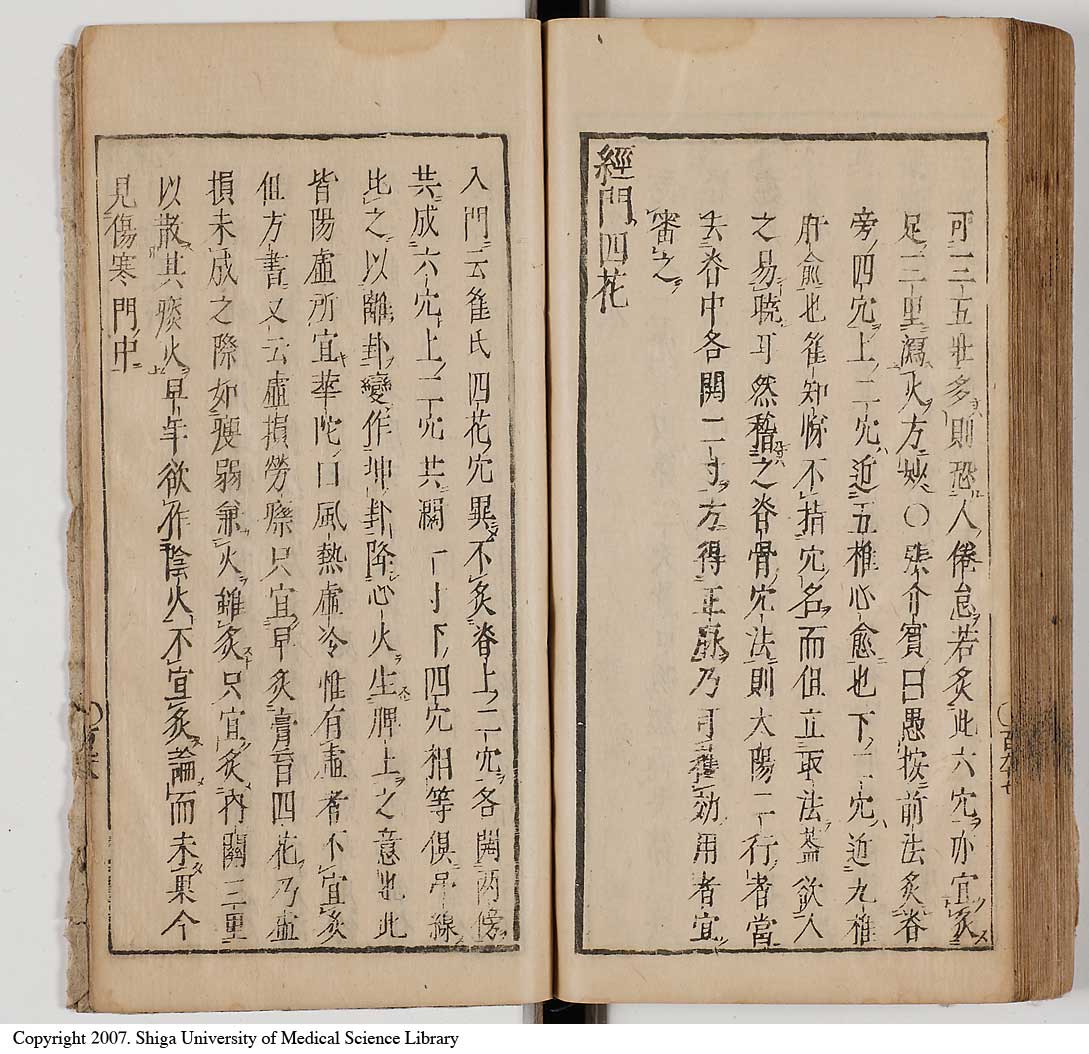 可一三五壯多則恐人倦怠若灸此六穴亦宜灸
足三里瀉火方妙〇張介賓曰愚按前法灸脊
旁四穴上二穴近五椎心俞也下二穴近九椎
肝俞也崔知悌不指穴名而但立取法蓋欲人
之易曉耳然稽之脊骨穴法則太陽二行者當
去脊中各開二寸方得正脈乃可獲効用者宜
審之
經門四花
入門云崔氏四花穴異不灸脊上二穴各開兩傍
共成六穴上二穴共濶一寸下四穴相等俱吊線
比之以離卦變作坤卦降心火生脾土之意也此
皆陽虛所宜華陀曰風熱虛冷惟有虛者不宜灸
但方書又云虛損勞瘵只宜早灸膏肓四花乃虛
損未成之際如瘦弱兼火雖灸只宜灸內關三里
以散其痰火早年欲作陰火不宜灸論而未果今
見傷寒門中
Copyright 2007. Shiga University of Medical Science Library